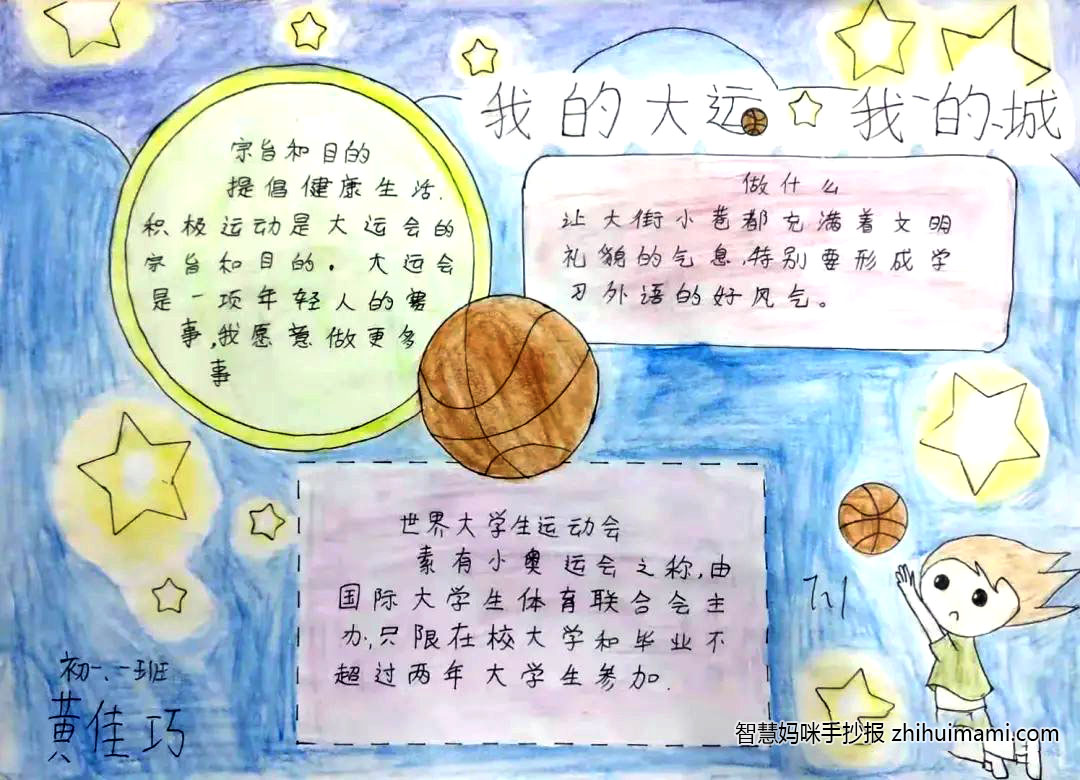 我的大运 我的城
宗旨和目的
提倡健康生活.
积极运动是大运会的
宗旨和目的。大运会
是一项年轻人的赛
事,我愿意做更多
事
做什么
让大街小巷都充满着文明
礼貌的气息,特别要形成学
习外语的好风气。
世界大学生运动会
素有小奥运会之称,由
国际大学生体育联合会主
办,只限在校大学和毕业不
超过两年大学生参加.
初一、一班
黄佳巧
智慧妈咪手抄报 zhihuimami.com